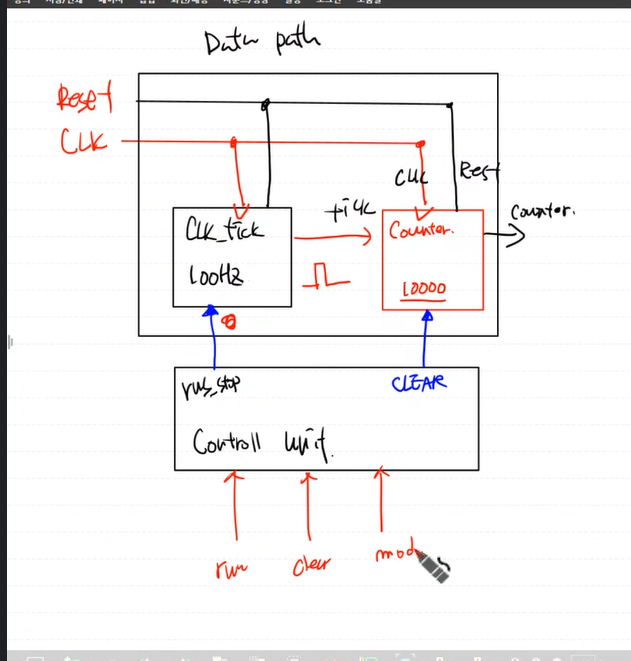 Data path
Reset
CLK
CLK
Rest
CLK_tick
100Hz
tick
Counter.
10000
Counter.
run_stop
CLEAR
Controll unit.
run
clear
mod